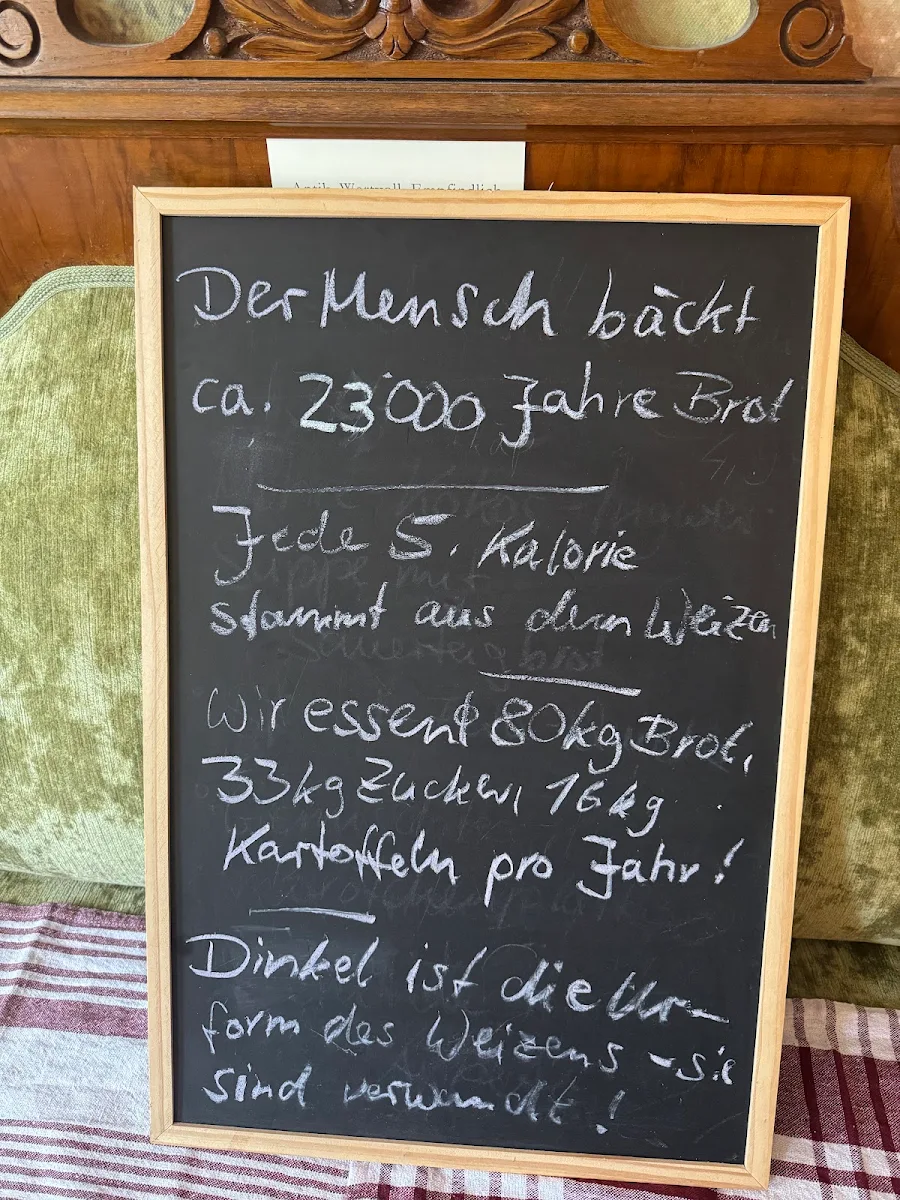 Antik, Wertvoll, Empfindlich
Der Mensch bäckt
ca. 23'000 Jahre Brot
Jede 5. Kalorie
stammt aus dem Weizen
Wir essen 80kg Brot,
33kg Zucker, 16kg
Kartoffeln pro Jahr!
Dinkel ist die Ur-
form des Weizens - sie
sind verwandt!